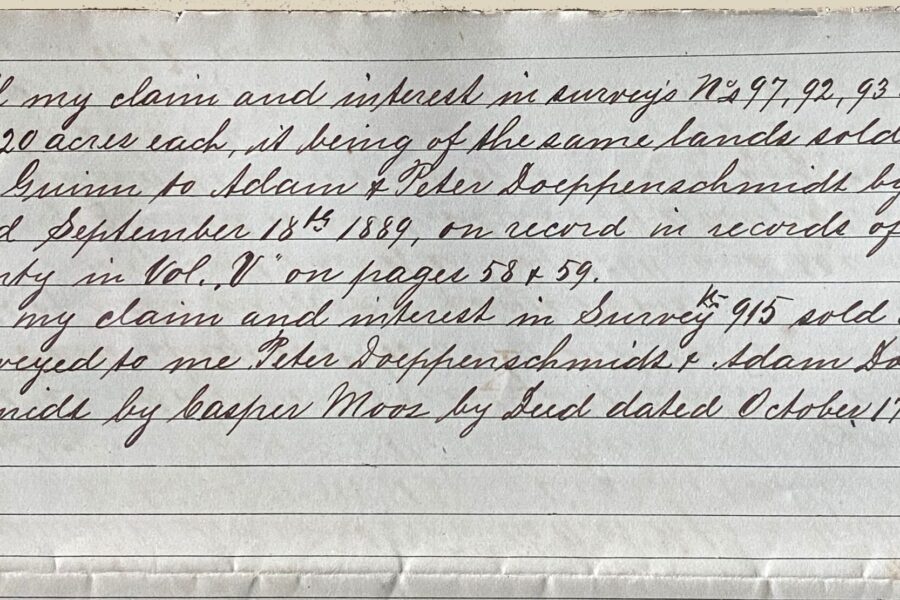 l my claim and interest in surveys Nos 97, 92, 93
20 acres each, it being of the same lands sold
Guinn to Adam & Peter Doeppenschmidt by
d September 18th 1889, on record in records of
nty in Vol. „V" on pages 58 & 59.
my claim and interest in Survey 915 sold
veyed to me Peter Doeppenschmidt & Adam Do
midt by Casper Moos by Deed dated October 17